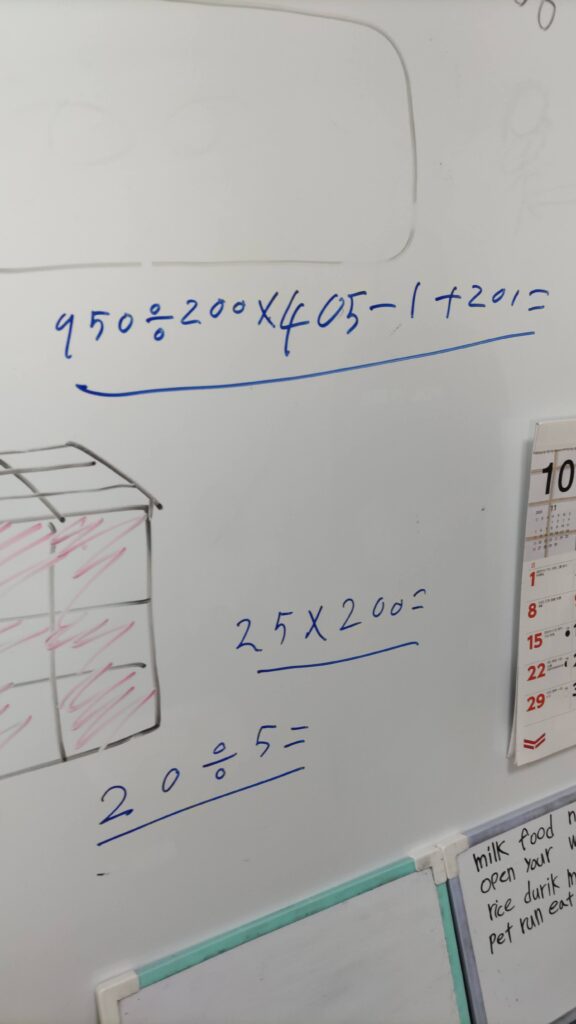 950÷200×405-1+201=
10
11
1
8
15
22
29
25×200=
20÷5=
milk food
open your
rice durik
pet run eat